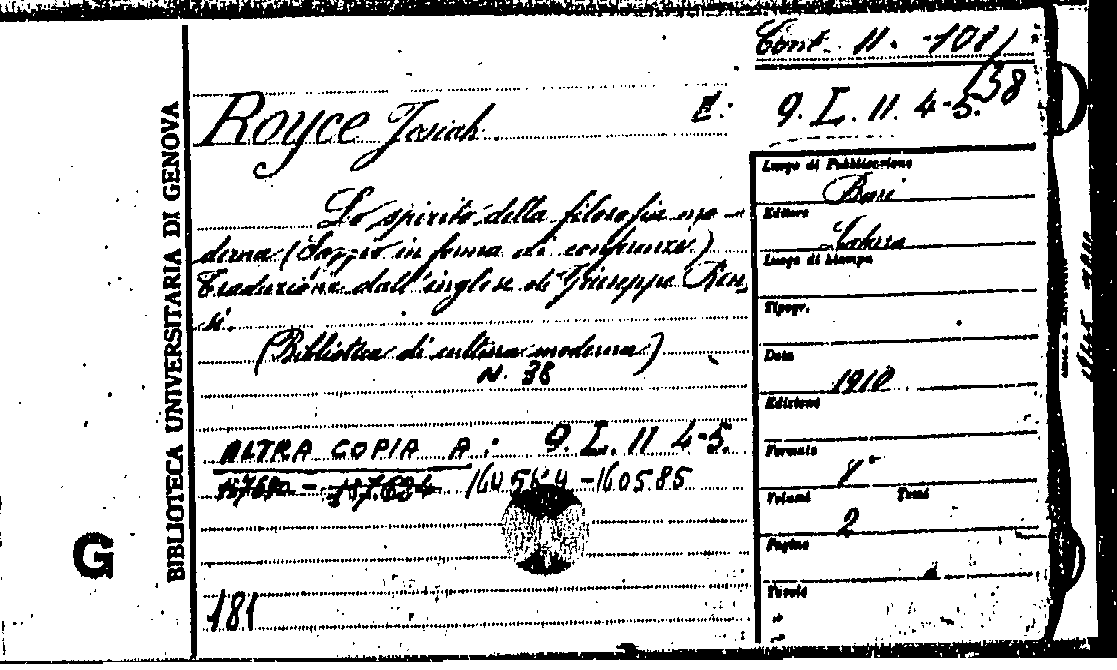 Cont. 11. -101/
/38
Royce Josiah E:
9. L. 11. 4-5.
Lo spirito della filosofia mo-
derna (Saggio in forma di conferenze)
Traduzione dall'inglese di Giuseppe Ren
si.
(Biblioteca di cultura moderna)
N. 38
ALTRA COPIA A: 9. L. 11 4-5.
-160585
181
G
BIBLIOTECA UNIVERSITARIA DI GENOVA
Luogo di Pubblicazione
Bari
Editore
Laterza
Luogo di stampa
Tipogr.
Data
1910
Edizione
Formato
8°
Volumi Tomi
2
Pagine
Tavole